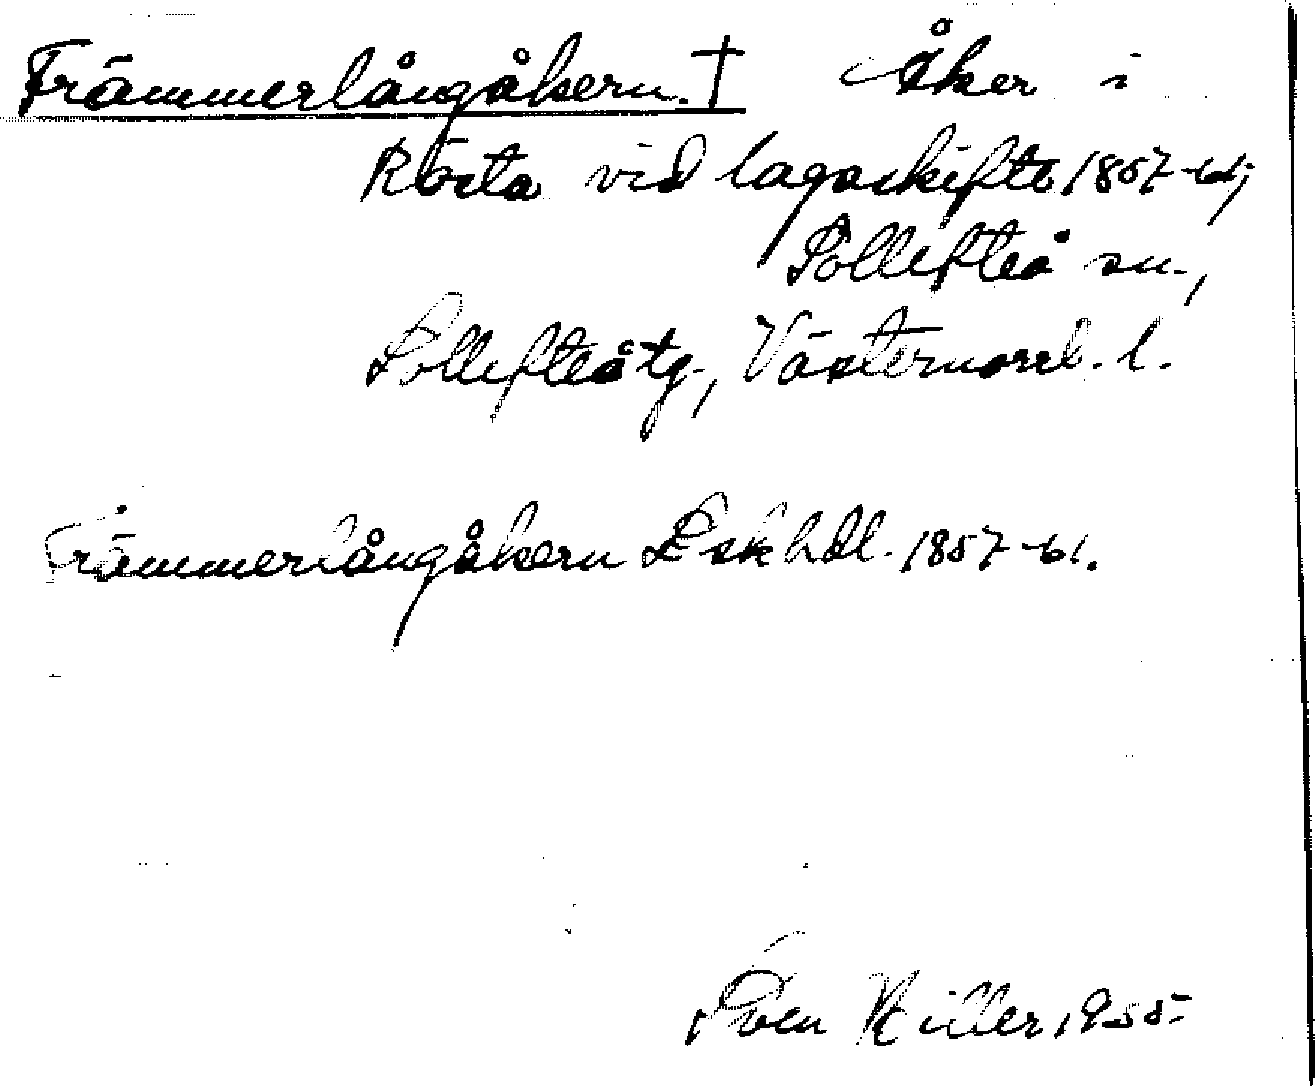 Främmerlångåkern. † Åker i
Rösta vid lagaskifte 1857-61;
Sollefteå sn.,
Sollefteå tg., Västernorrl. l.
Främmerlångåkern Lskhdl. 1857-61.
Sven Hiller 1955